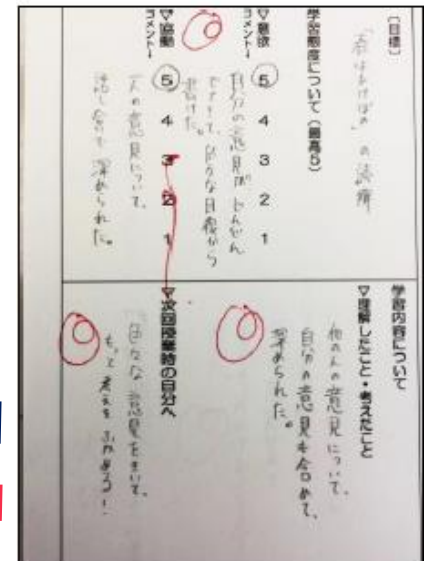 〔目標〕
「春はあけぼの」の読解
学習態度について（最高5）
▽意欲 5 4 3 2 1
コメント↓
自分の意見がどんどん
でてきて、色々な目線から
書けた。
▽協働 5 4 3 2 1
コメント↓
一人の意見について、
話し合って深められた。
学習内容について
▽理解したこと・考えたこと
他の人の意見について、
自分の意見も含めて、
深められた。
▽次回授業時の自分へ
色々な意見をきいて、
もっと考えをふかめる！